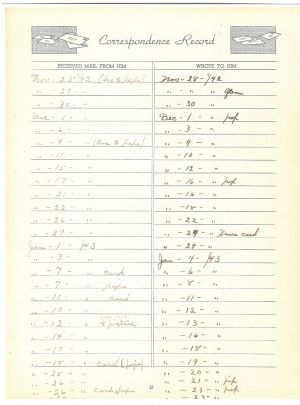 Correspondence Record
RECEIVED MAIL FROM HIM
WROTE TO HIM
Nov - 28 '42 (one to papa)
" - 29 - "
" - 30 - "
Dec - 1 - "
" - 6 - "
" - 9 - " (one to papa)
" - 11 - "
" - 15 - "
" - 17 - "
" - 21 - "
" - 22 - "
" - 26 - "
" - 27 - "
Jan - 1 - '43
" - 3 - "
" - 7 - " card
" - 7 - " papa
" - 10 - " card
" - 10 - "
" - 12 - " picture
" - 14 - "
" - 17 - "
" - 18 - " card (papa)
" - 25 - "
" - 26 - "
" - 26 - " card papa
Nov - 28 - '42
" - " - " Glenn
" - 30 - "
Dec - 1 - " pop
" - 3 - "
" - 4 - "
" - 10 - "
" - 12 - "
" - 16 - " pop
" - 16 - "
" - 18 - "
" - 22 - "
" - 27 - " Xmas card
" - 29 - "
Jan - 4 - '43
" - 6 - "
" - 8 - "
" - 11 - "
" - 12 - "
" - 13 - "
" - 16 - "
" - 18 - "
" - 19 - "
" - 20 - "
" - 21 - " pop
" - 23 - " pop